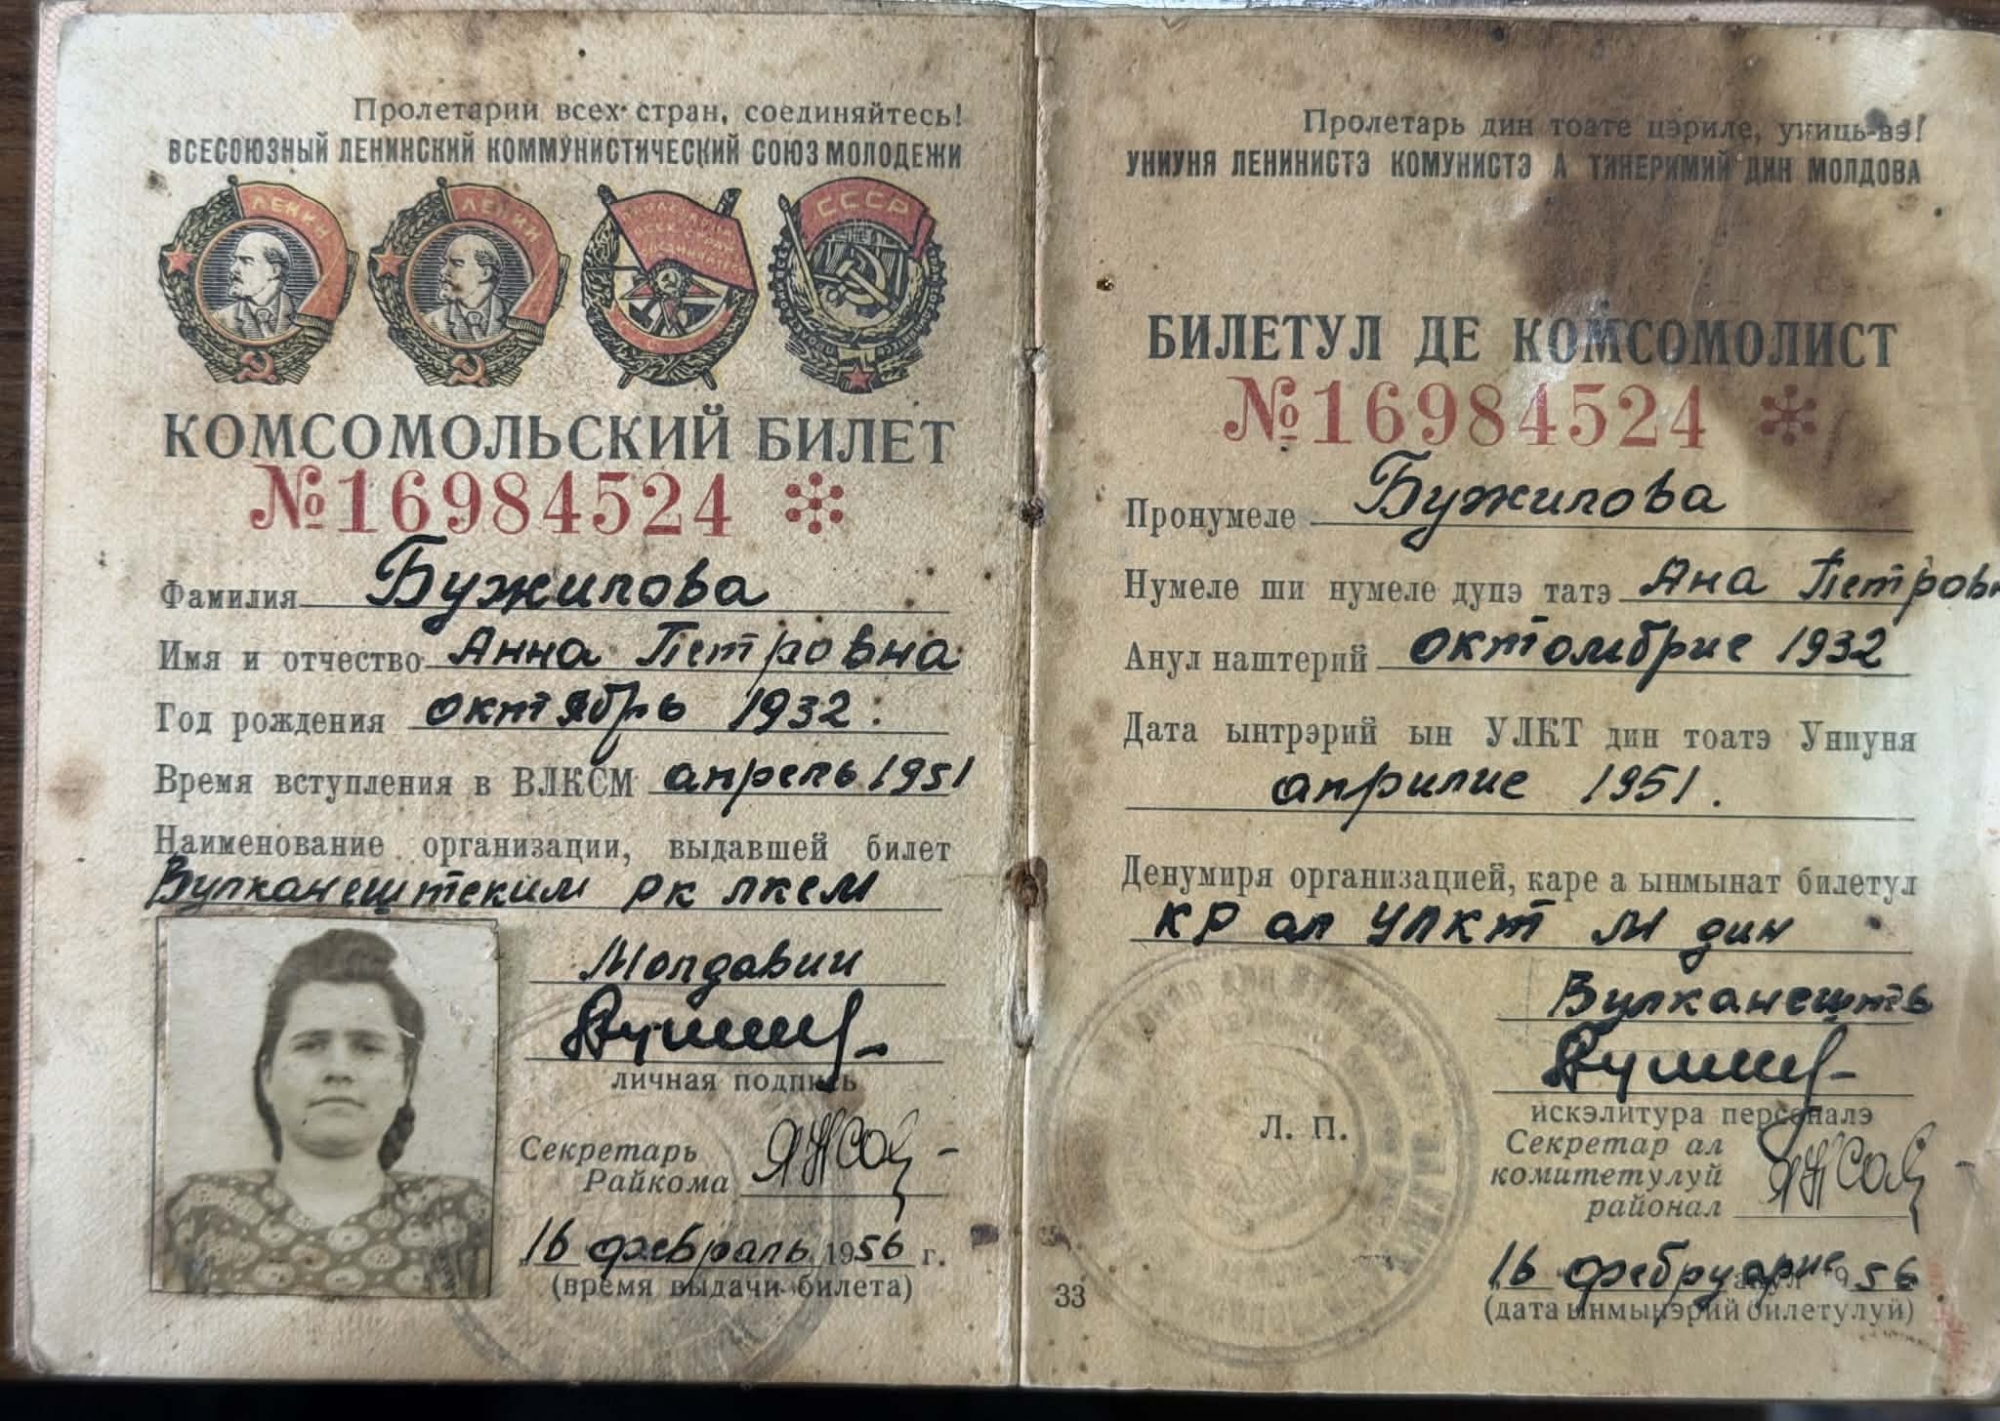 Пролетарии всех стран, соединяйтесь!
ВСЕСОЮЗНЫЙ ЛЕНИНСКИЙ КОММУНИСТИЧЕСКИЙ СОЮЗ МОЛОДЕЖИ
ЛЕНИН
ЛЕНИН
ПРОЛЕТАРИИ ВСЕХ СТРАН СОЕДИНЯЙТЕСЬ
СССР
КОМСОМОЛЬСКИЙ БИЛЕТ
№16984524
Фамилия Бужилова
Имя и отчество Анна Петровна
Год рождения октябрь 1932.
Время вступления в ВЛКСМ апрель 1951
Наименование организации, выдавшей билет
Вулканештским РК ЛКСМ
Молдавии
личная подпись
Секретарь
Райкома
16 февраль 1956 г.
(время выдачи билета)
Пролетарь дин тоате цэриле, униць-вэ!
УНИУНЯ ЛЕНИНИСТЭ КОМУНИСТЭ А ТИНЕРИМИЙ ДИН МОЛДОВА
БИЛЕТУЛ ДЕ КОМСОМОЛИСТ
№16984524
Пронумеле Бужилова
Нумеле ши нумеле дупэ татэ Ана Петровн
Анул наштерий октомбрие 1932
Дата ынтрэрий ын УЛКТ дин тоатэ Униуня
априлие 1951.
Денумиря организацией, каре а ынмынат билетул
КР ал УЛКТ М дин
Вулканешть
искэлитура персоналэ
Л. П.
Секретар ал
комитетулуй
районал
16 фебруарие 1956
(дата ынмынэрий билетулуй)
33